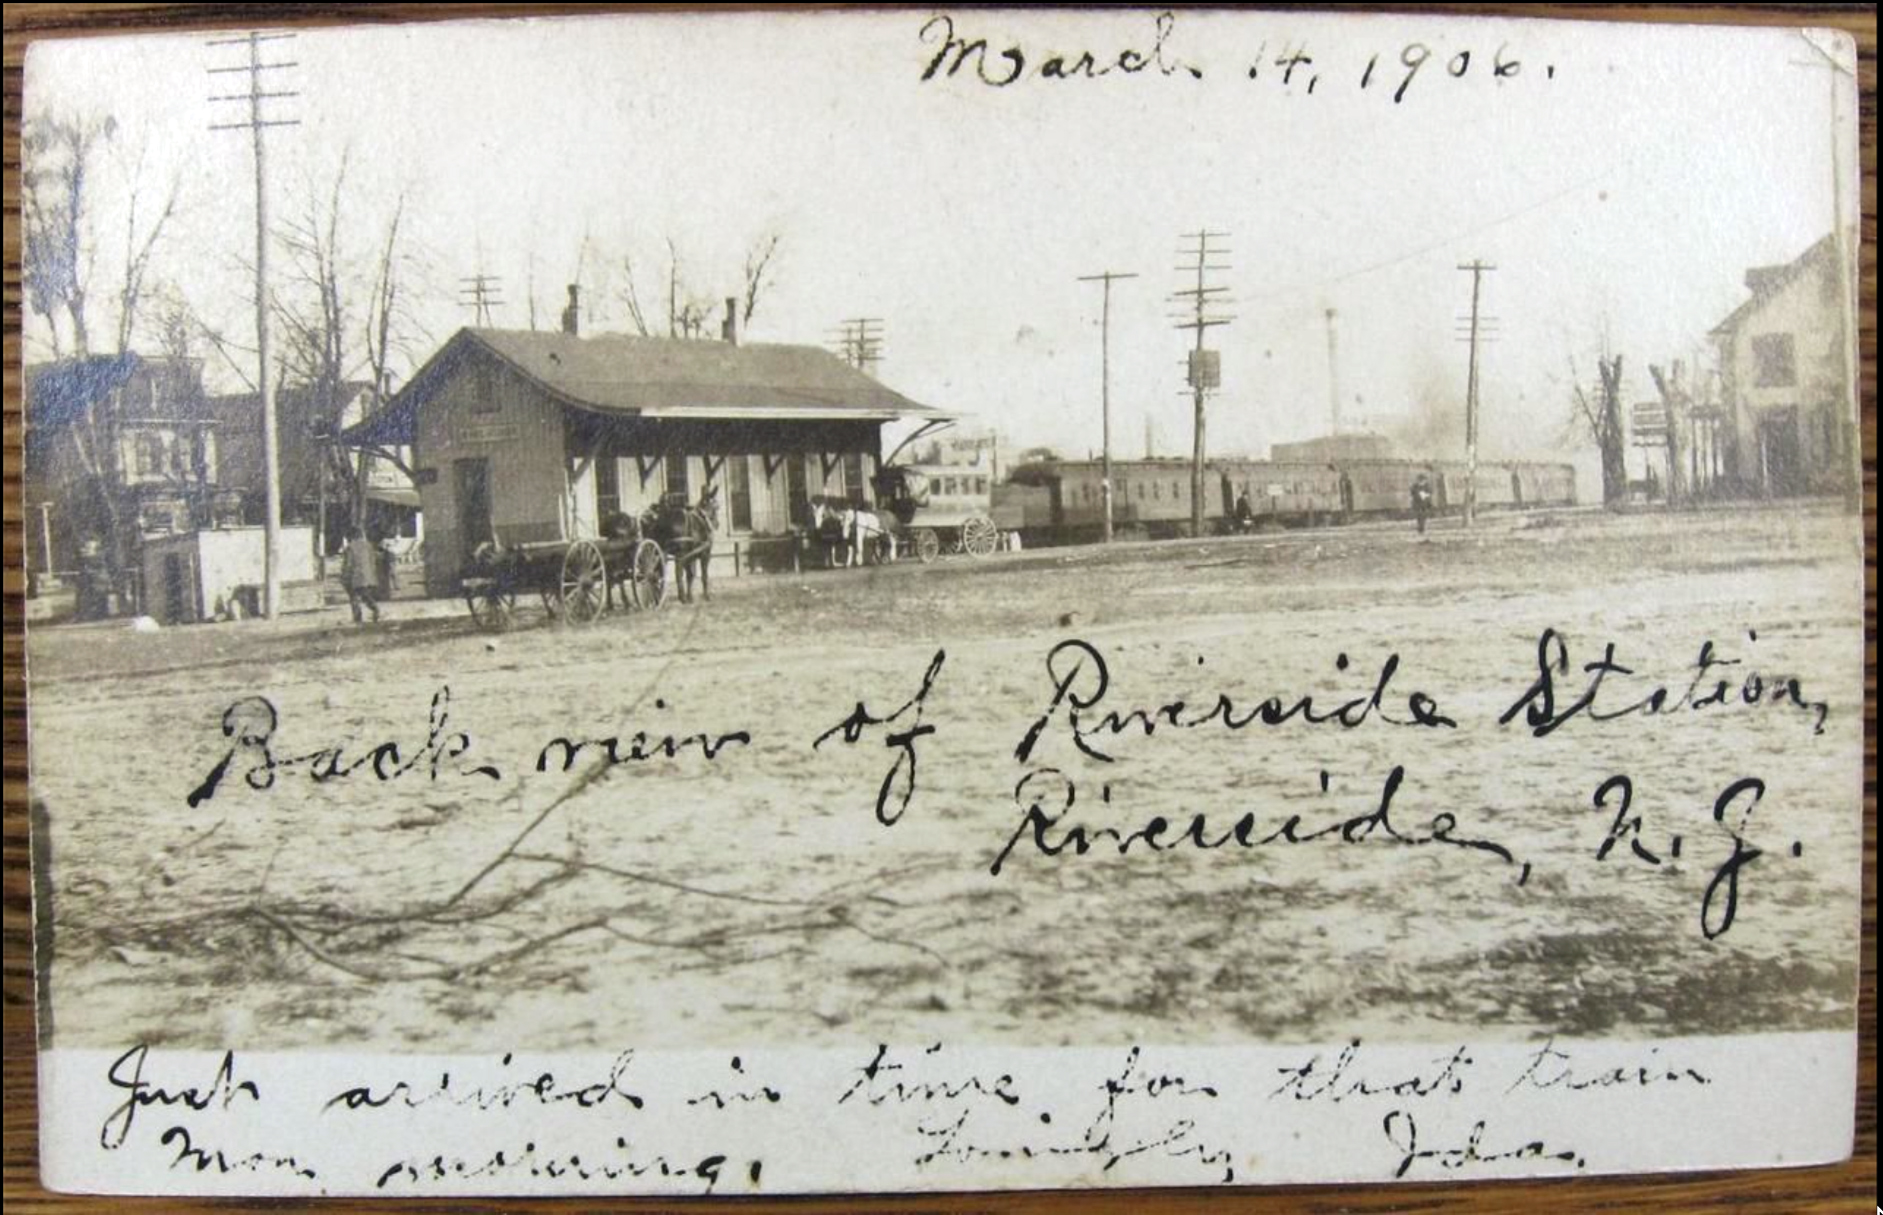 March 14, 1906.
Back view of Riverside Station,
Riverside, N.J.
Just arrived in time for that train
Mon morning. Lovingly Ida.